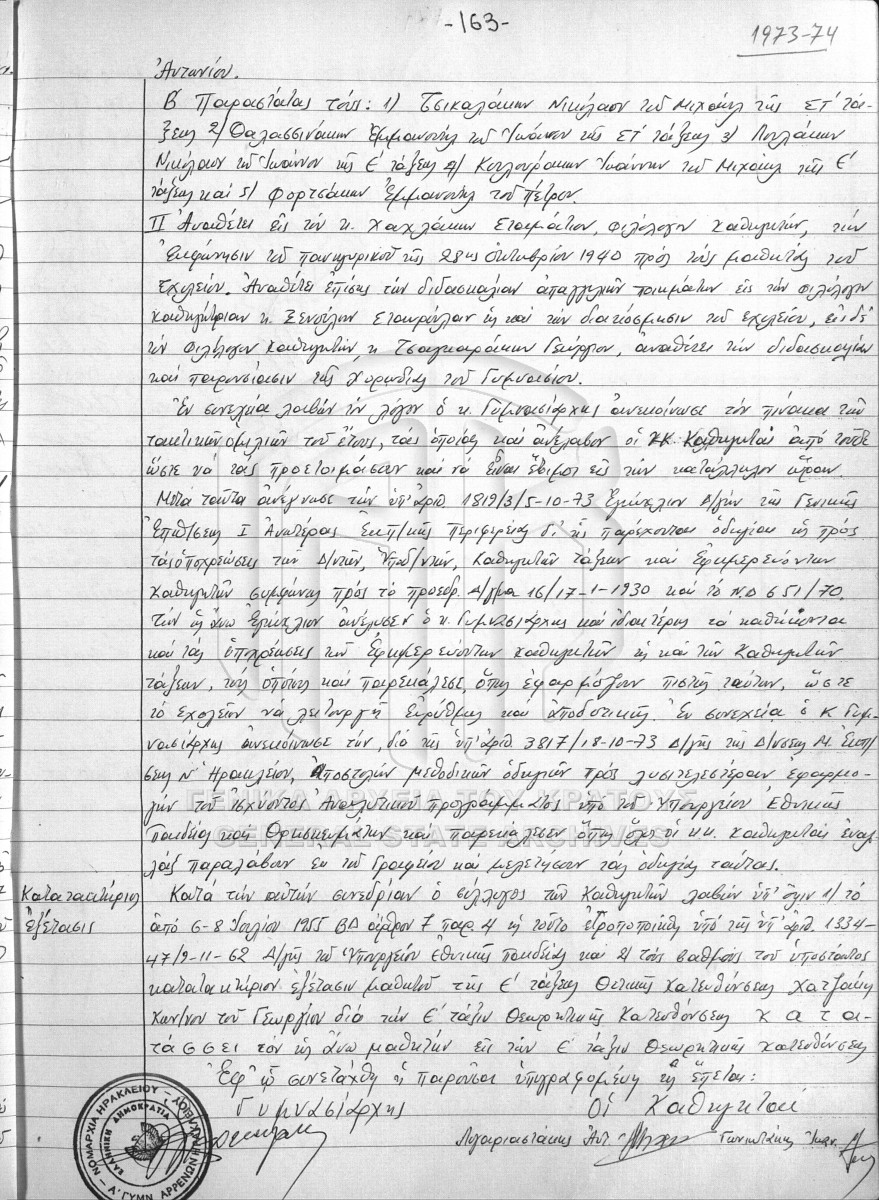 -163-
1973-74
Ἀντωνίου.
Β' Παραστάτας τούς: 1) Τσικαλάκην Νικόλαον τοῦ Μιχαήλ τῆς ΣΤ' τά-
ξεως 2) Θαλασσινάκην Ἐμμανουήλ τοῦ Ἰωάννου τῆς ΣΤ' τάξεως 3) Λουλάκην
Νικόλαον τοῦ Ἰωάννου τῆς Ε' τάξεως 4) Κουλουράκην Ἰωάννην τοῦ Μιχαήλ τῆς Ε'
τάξεως καί 5) Φορτσάκην Ἐμμανουήλ τοῦ Πέτρου.
II Ἀναθέτει εἰς τόν κ. Χαχλάκην Σταμάτιον, φιλόλογον καθηγητήν, τήν
ἐκφώνησιν τοῦ πανηγυρικοῦ τῆς 28ης Ὀκτωβρίου 1940 πρός τούς μαθητάς τοῦ
Σχολείου. Ἀναθέτει ἐπίσης τήν διδασκαλίαν ἀπαγγελιῶν ποιημάτων εἰς τήν φιλόλογον
καθηγήτριαν κ. Ξενούλην Σταυρούλαν ὡς καί τήν διακόσμησιν τοῦ σχολείου, εἰς δέ
τόν φιλόλογον καθηγητήν, κ. Τσαγκαράκην Γεώργιον, ἀναθέτει τήν διδασκαλίαν
καί παρουσίασιν τῆς χορωδίας τοῦ Γυμνασίου.
Ἐν συνεχείᾳ λαβών τόν λόγον ὁ κ. Γυμνασιάρχης ἀνεκοίνωσε τόν πίνακα τῶν
τακτικῶν ὁμιλιῶν τοῦ ἔτους, τάς ὁποίας καί ἀνέλαβον οἱ κκ. Καθηγηταί ἀπό τοῦδε
ὥστε νά τάς προετοιμάσουν καί νά εἶναι ἕτοιμοι εἰς τήν κατάλληλον ὥραν.
Μετά ταῦτα ἀνέγνωσε τήν ὑπ' ἀριθ. 1819/3/5-10-73 Ἐγκύκλιον Δ/γήν τῆς Γενικῆς
Ἐπιθ/σεως I Ἀνωτέρας Ἐκπ/κῆς περιφερείας δι' ἧς παρέχονται ὁδηγίαι ὡς πρός
τάς ὑποχρεώσεις τῶν Δ/ντῶν, Ὑποδ/ντῶν, Καθηγητῶν τάξεων καί Ἐφημερευόντων
καθηγητῶν συμφώνως πρός τό προεδρ. Δ/γμα 16/17-1-1930 καί τό Ν.Δ 651/70.
Τήν ὡς ἄνω Ἐγκύκλιον ἀνέλυσεν ὁ κ. Γυμνασιάρχης καί ἰδιαιτέρως τά καθήκοντα
καί τάς ὑποχρεώσεις τῶν ἐφημερευόντων καθηγητῶν ὡς καί τῶν καθηγητῶν
τάξεων, τούς ὁποίους καί παρεκάλεσε, ὅπως ἐφαρμόζουν πιστῶς ταύτην, ὥστε
τό σχολεῖον νά λειτουργῇ εὐρύθμως καί ἀποδοτικῶς. Ἐν συνεχείᾳ ὁ κ Γυμ-
νασιάρχης ἀνεκοίνωσε τήν, διά τῆς ὑπ' ἀριθ. 3817/18-10-73 Δ/γῆς τῆς Δ/νσεως Μ. Ἐκπ/
σεως Ν. Ἡρακλείου, ἀποστολήν μεθοδικῶν ὁδηγιῶν πρός λυσιτελεστέραν ἐφαρμο-
γήν τοῦ ἰσχύοντος Ἀναλυτικοῦ προγράμματος ὑπό τοῦ Ὑπουργείου Ἐθνικῆς
Παιδείας καί Θρησκευμάτων καί παρεκάλεσεν ὅπως ὅλοι οἱ κκ. καθηγηταί ἐναλ-
λάξ παραλάβουν ἐκ τοῦ Γραφείου καί μελετήσουν τάς ὁδηγίας ταύτας.
Κατατακτήριος
ἐξέτασις
Κατά τήν αὐτήν συνεδρίαν ὁ σύλλογος τῶν Καθηγητῶν λαβών ὑπ' ὄψιν 1) τό
ἀπό 6-8 Ἰουλίου 1955 ΒΔ ἄρθρον 7 παρ. 4 ὡς τοῦτο ἐτροποποιήθη ὑπό τῆς ὑπ' ἀριθ. 1334-
47/9-11-62 Δ/γῆς τοῦ Ὑπουργείου Ἐθνικῆς Παιδείας καί 2) τούς βαθμούς τοῦ ὑποστάντος
κατατακτήριον ἐξέτασιν μαθητοῦ τῆς Ε' τάξεως Θετικῆς Κατευθύνσεως Χατζάκη
Κων/νου τοῦ Γεωργίου διά τήν Ε' τάξιν Θεωρητικῆς Κατευθύνσεως κ α τ α-
τ ά σ σ ε ι τόν ὡς ἄνω μαθητήν εἰς τήν Ε' τάξιν Θεωρητικῆς κατευθύνσεως
Ἐφ' ᾧ συνετάχθη ἡ παροῦσα ὑπογραφομένη ὡς ἕπεται:
Γυμνασιάρχης
Οἱ Καθηγηταί
Λιγοριαστάκης Ἀντ.
Γωνιωτάκης Ἰωαν.
ΝΟΜΑΡΧΙΑ ΗΡΑΚΛΕΙΟΥ
ΕΛΛΗΝΙΚΗ ΔΗΜΟΚΡΑΤΙΑ
Α' ΓΥΜΝ. ΑΡΡΕΝΩΝ
ΓΕΝΙΚΑ ΑΡΧΕΙΑ ΤΟΥ ΚΡΑΤΟΥΣ
GENERAL STATE ARCHIVES